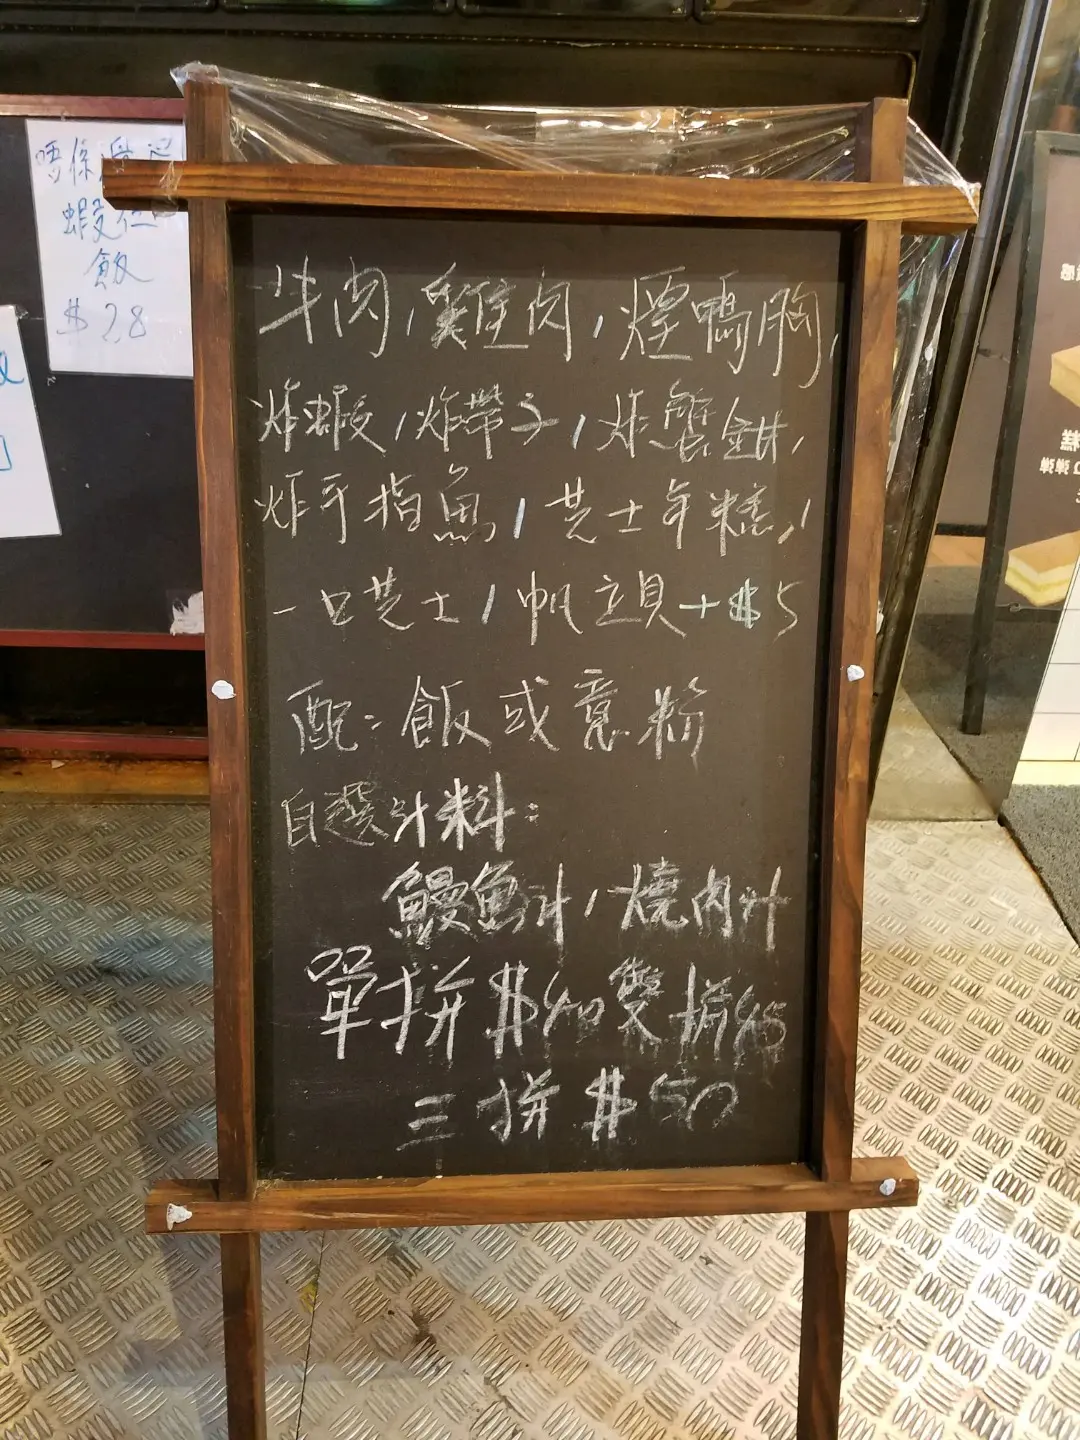 唔係
蝦仁
飯
$28
牛肉,雞肉,煙鴨胸,
炸蝦,炸帶子,炸蟹鉗,
炸手指魚,芝士年糕,
一口芝士,帆立貝+$5
配:飯或意粉
自選汁料:
鰻魚汁,燒肉汁
單拼$40雙拼45
三拼$50